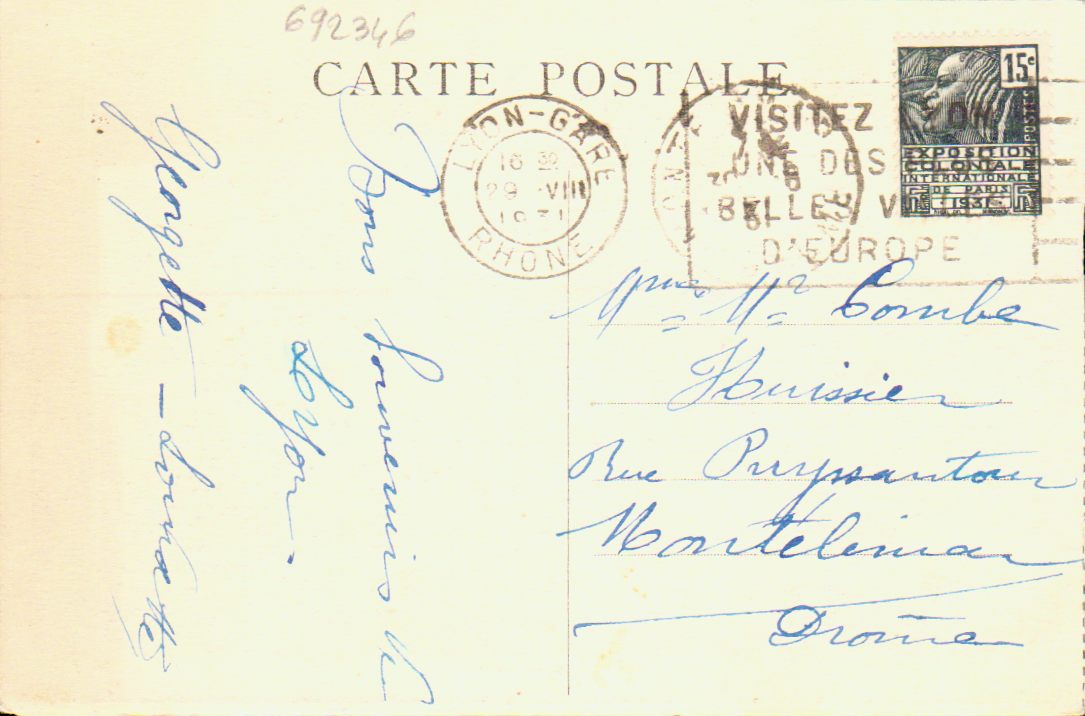 692346
CARTE POSTALE
LYON-GARE
16 30
29 VIII
1931
RHONE
VISITEZ LYON
UNE DES
BELLES VILLES
D'EUROPE
15c
POSTES
EXPOSITION
COLONIALE
INTERNATIONALE
DE PARIS
1931
Bons Souvenirs de
Lyon.
Georgette - Louisette
Mme Mr Combe
Huissier
Rue Puysantour
Montélimar
Drôme